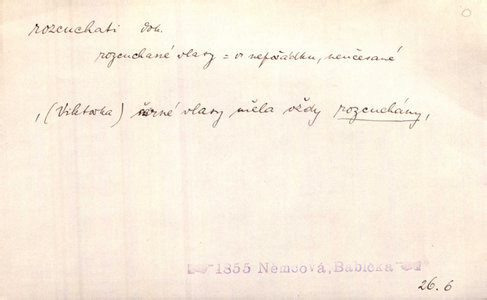 rozcuchati dok.
rozcuchané vlasy = v nepořádku, nenčesané
‚(Viktorka) černé vlasy měla vždy rozcuchány‚
1855 Němcová, Babička
26.6